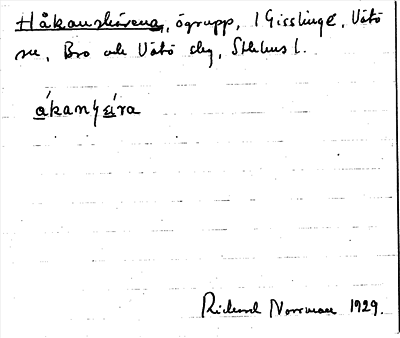 Håkanskärena, ögrupp, 1 Gisslinge, Vätö
sn, Bro och Vätö skg, Sthlms l.
ákanʃɛ́ɩra
Richard Norrman 1929.